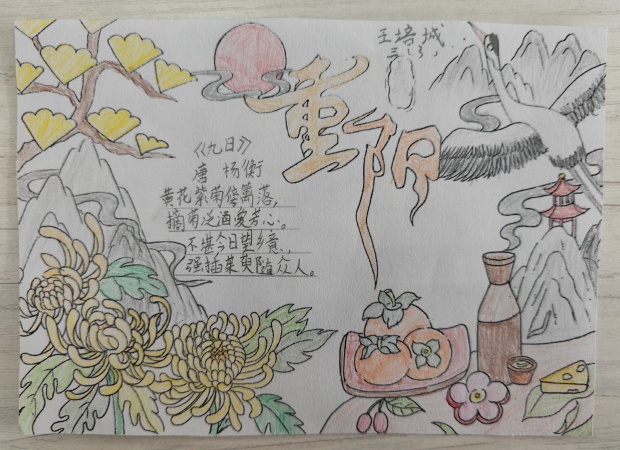 王培城
三(3)
重阳
《九日》
唐 杨衡
黄花紫菊傍篱落,
摘菊泛酒爱芳心。
不堪今日望乡意,
强插茱萸随众人。